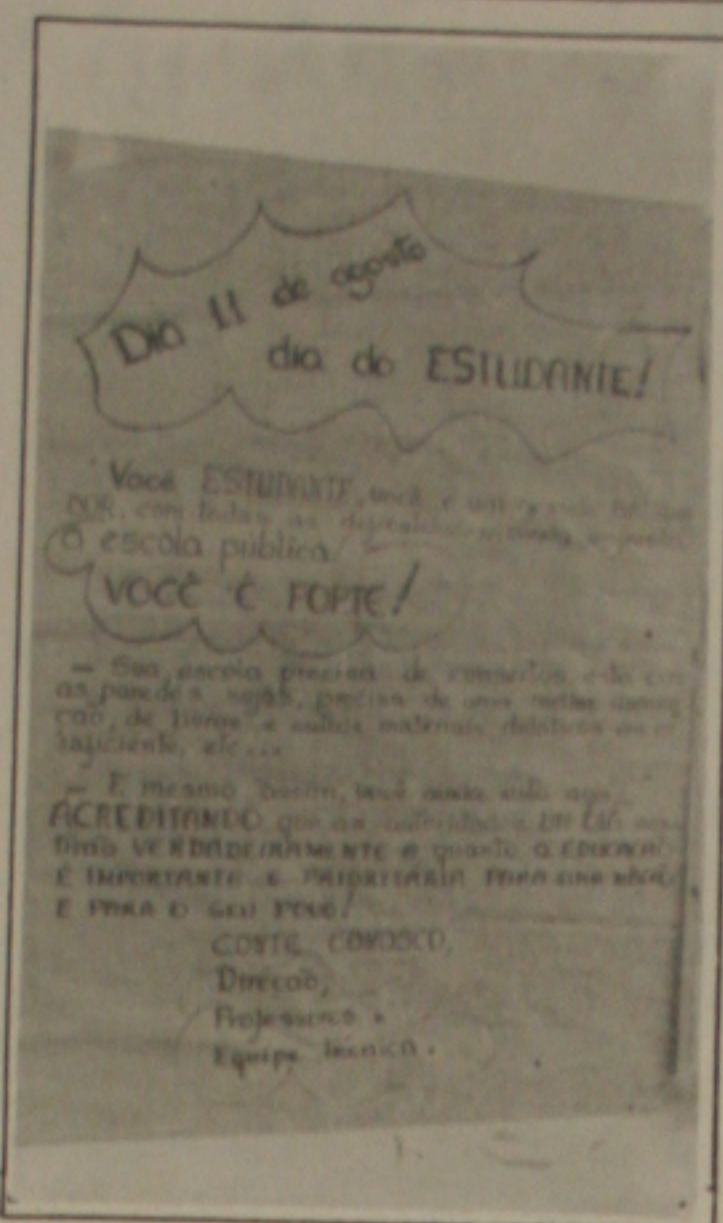 Dia 11 de agosto
dia do ESTUDANTE!
Você ESTUDANTE, você é um
DOR, com todas as
a escola pública
VOCÊ É FORTE!
— Sua escola precisa de consertos, está com
as paredes sujas, precisa de uma melhor
ção, de livros e outros materiais didáticos
suficiente, etc...
— E mesmo assim, você ainda está aqui
ACREDITANDO que as autoridades UM DIA
VERDADEIRAMENTE o quanto a EDUCAÇÃO
É IMPORTANTE E PRIORITÁRIA PARA UMA NAÇÃO
E PARA O SEU POVO!
CONTE CONOSCO,
Direção,
Professores e
Equipe técnica.